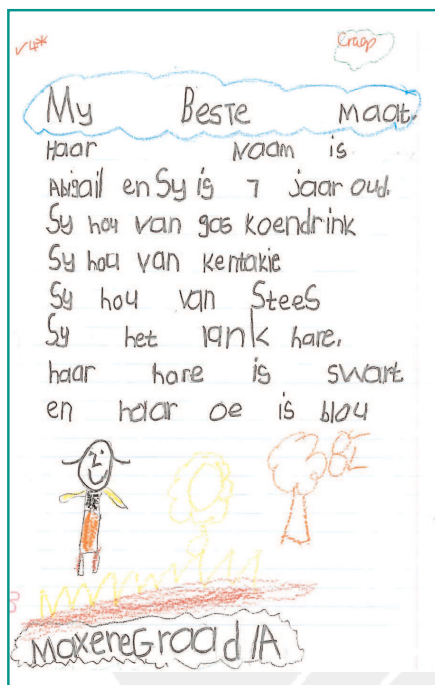 My Beste maat.
Haar Naam is
Abigail en Sy is 7 jaar oud.
Sy hou van gas koendrink
Sy hou van kentakie
Sy hou van Stees
Sy het lank hare.
haar hare is swart
en haar oe is blou
Maxene Graad 1A